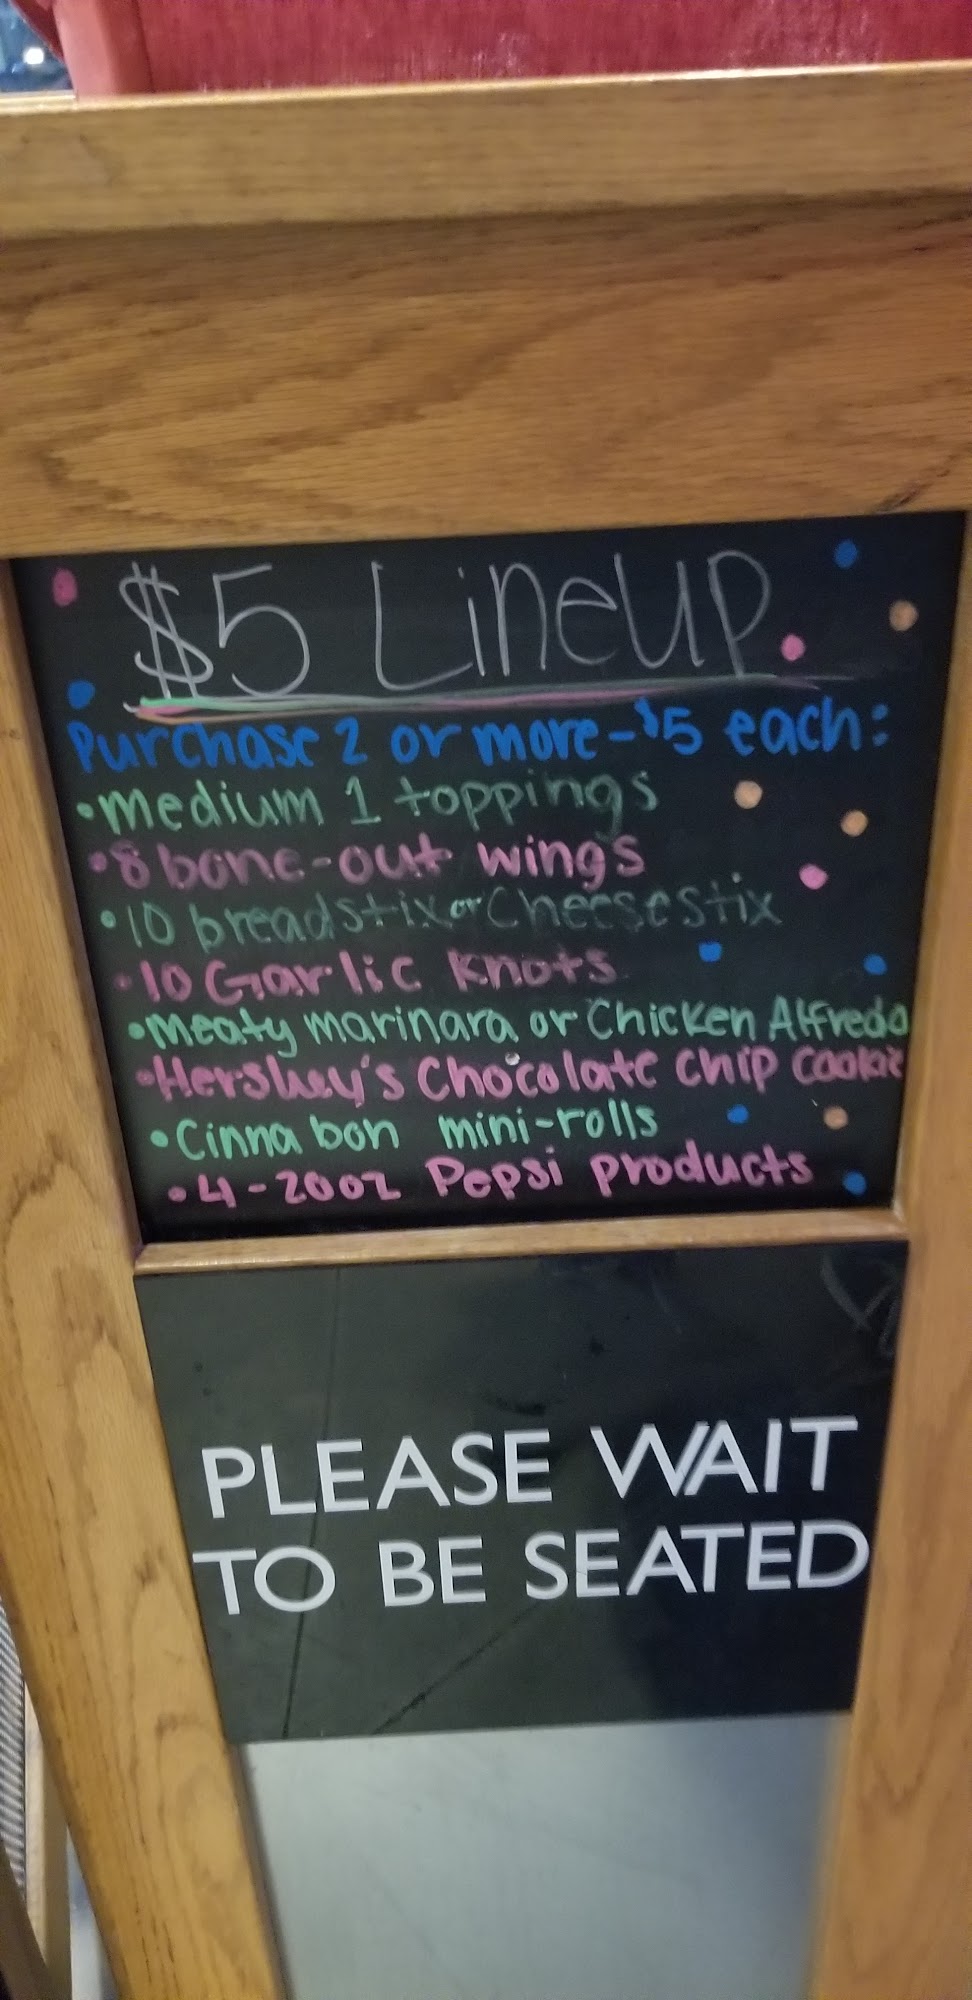 $5 Lineup
Purchase 2 or more - $5 each:
• Medium 1 toppings
• 8 bone-out wings
• 10 breadstix or Cheesestix
• 10 Garlic Knots
• Meaty Marinara or Chicken Alfredo
• Hershey's Chocolate Chip Cookie
• Cinnabon mini-rolls
• 4 - 20oz Pepsi products
PLEASE WAIT
TO BE SEATED